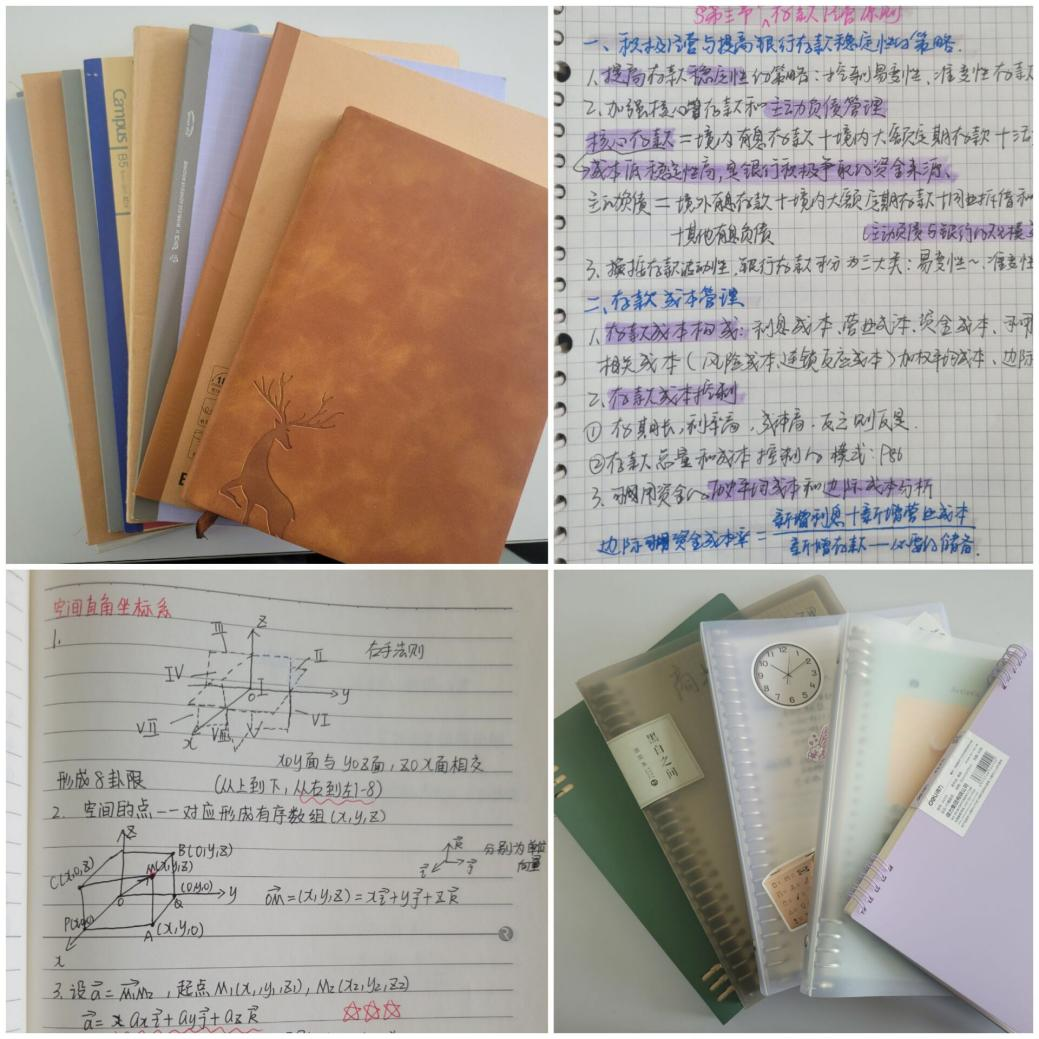 Campus
B5
第三节、存款经营原则
一、积极经营与提高银行存款稳定性的策略.
1、提高存款稳定性的策略:
2、加强核心存款和主动负债管理
核心存款=境内有息存款+境内大额定期存款+活
成本低稳定性高,是银行积极争取的资金来源、
主动负债=境外有息存款+境内大额定期存款+同业拆借和
+其他有息负债
3、按存款波动性,银行存款可分为三大类:易变性~、准变性
二、存款成本管理
1、存款成本构成:利息成本、营业成本、资金成本、可用
相关成本(风险成本、连锁反应成本)加权平均成本、边际
2、存款成本控制
①存期长,利率高,成本高.反之则反是.
②存款总量和成本控制的模式:P86
3、可用资金的加权平均成本和边际成本分析
边际可用资金成本率=新增利息+新增营业成本
新增存款一必要的储备.
空间直角坐标系
1.
III
z
II
右手法则
IV
I
o
y
VII
VIII
V
VI
x
xoy面与yoz面,zox面相交
形成8卦限
(从上到下,从右到左1-8)
2. 空间的点一一对应形成有序数组(x,y,z)
z
B(0,y,z)
C(x,0,z)
M(x,y,z)
分别为单位
向量
(0,y,0)
y
o
Q
OM=(x,y,z)=xi+yj+zk
A(x,y,0)
x
3.设a=M1M2,起点M1(x1,y1,z1),M2(x2,y2,z2)
a=x axi+ayj+azk
黑白之间
12
1
2
3
4
5
6
7
8
9
10
11
deli得力